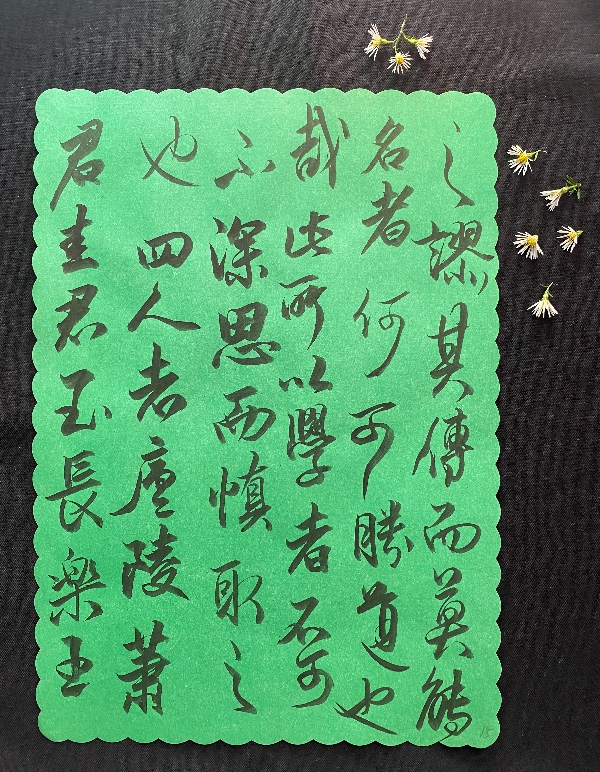 之謬其傳而莫能
名者何可勝道也
哉此所以學者不可
不深思而慎取之
也四人者廬陵蕭
君圭君玉長樂王
15